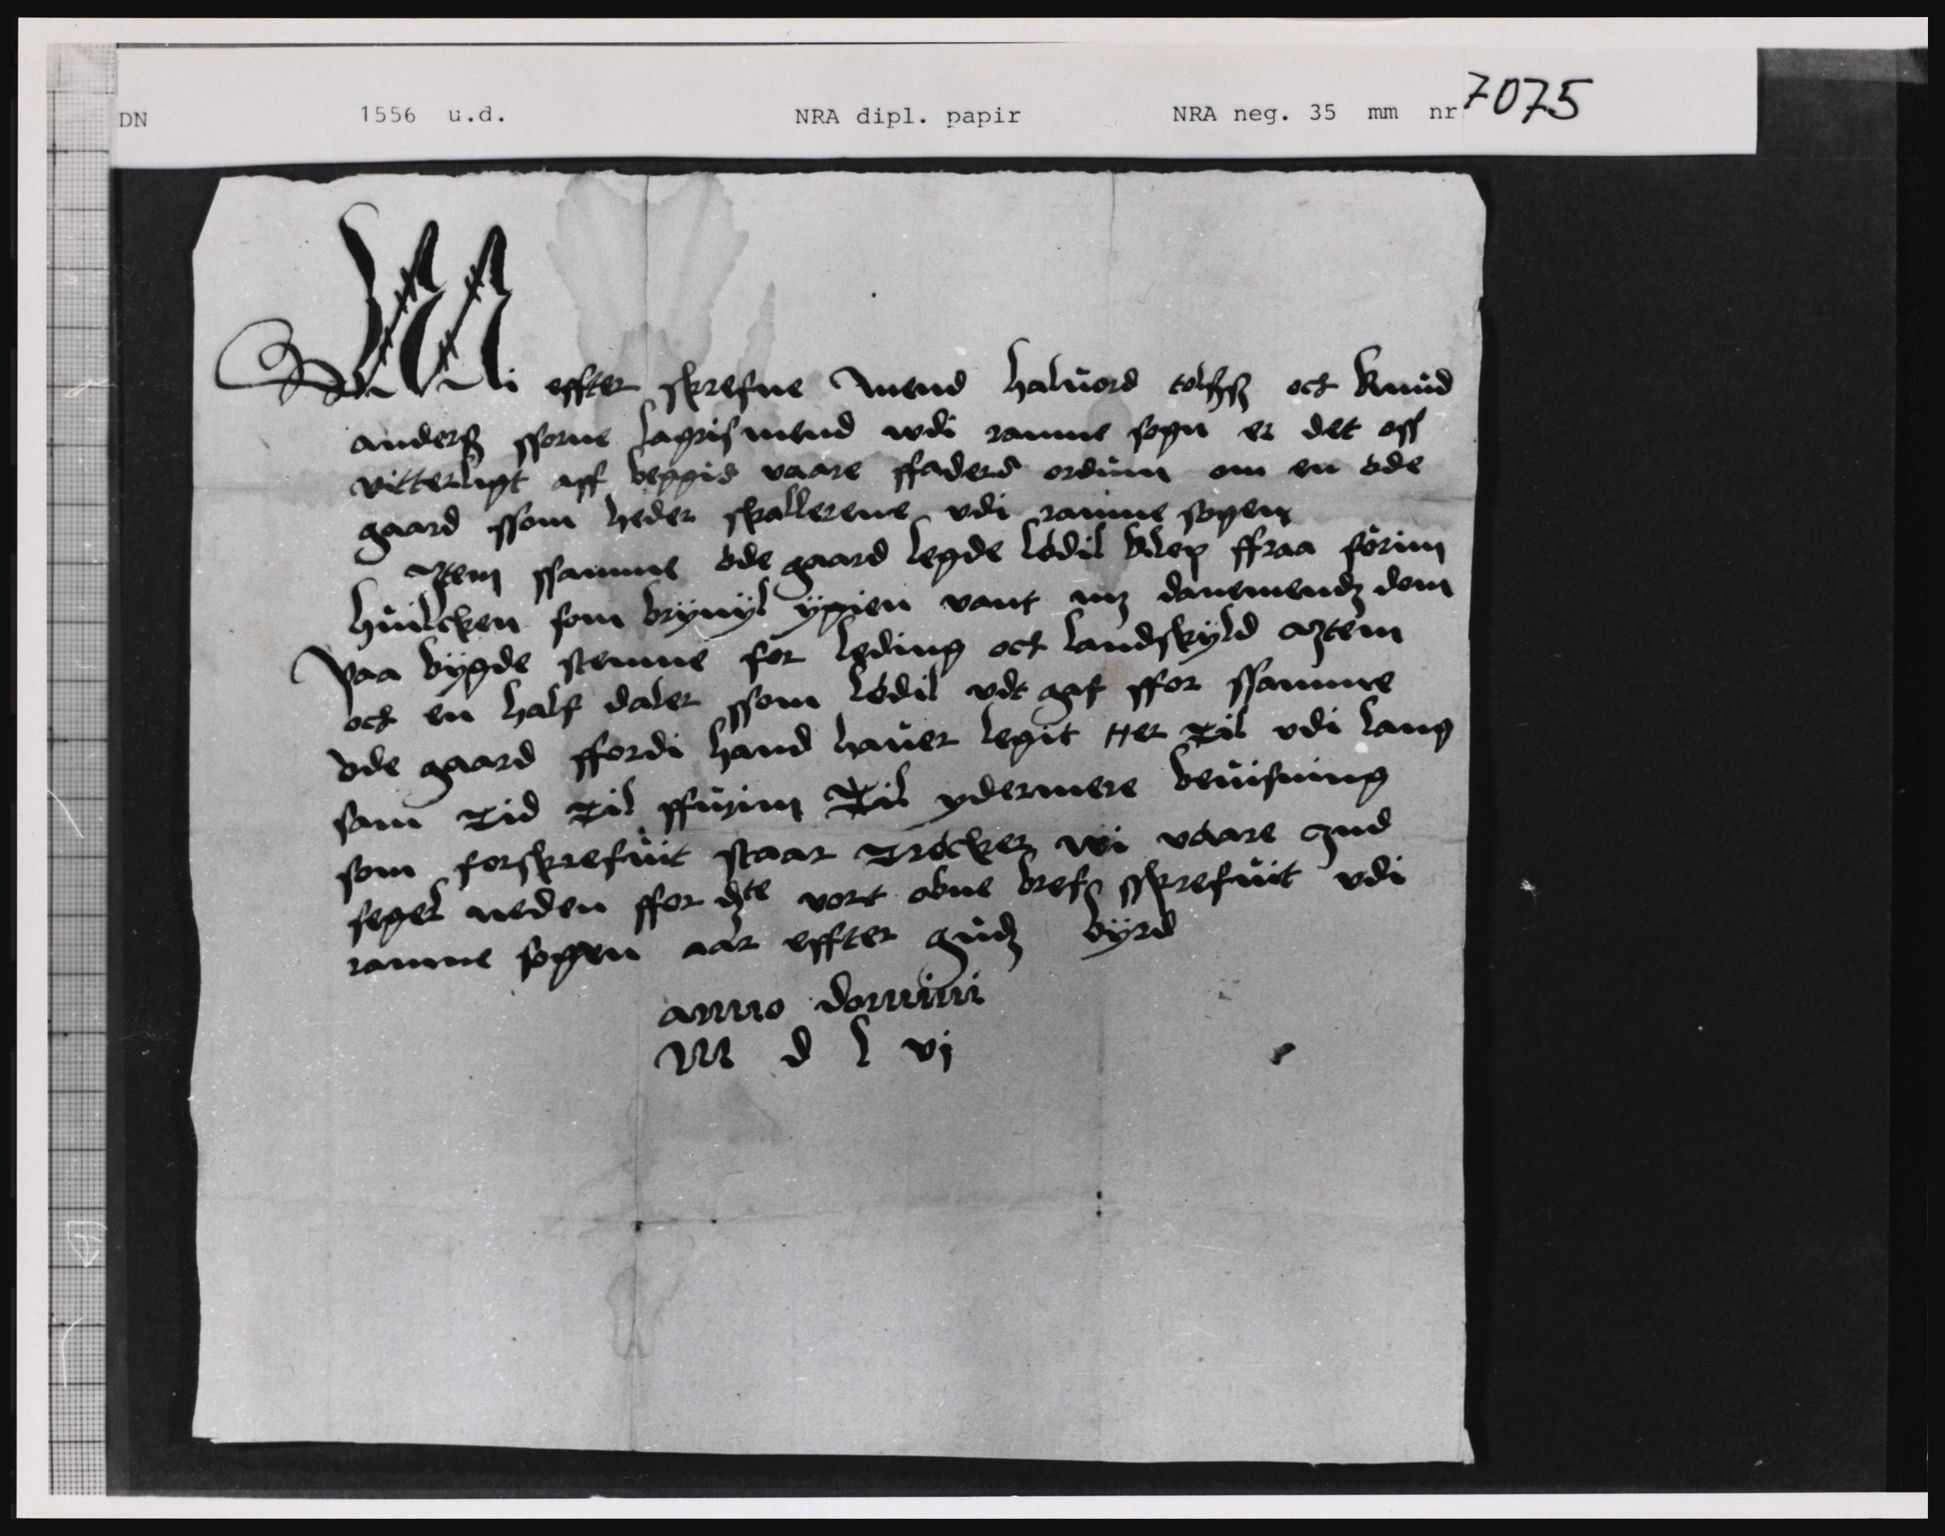 DN 1556 u.d. NRA dipl. papir NRA neg. 35 mm nr 7075
Wi effter skrefne mend haluord och knud
anderß ssorne lagrismend wdi ramne sogn er det oss
vitterligt aff beggis vaare ffaders ordum om en øde
gaard ssom heder skallerene vdi ramne sogen
Item ssamme øde gaard legde lódil ffraa
huilcken som vant danemendz dom
paa bÿgde stemne for leding och landskÿld Item
och en half daler ssom lódil vdt gaf ffor ssamme
øde gaard ffordi hand hauer legit Her Til vdi lang
som Tid Til Til ydermere beuisning
som forskrefuit staar Trócker wi vaare
segel neden ffor vort obne bref sskrefuit vdi
ramne sogen aar effter gudz bÿrd
anno domini
M d l vj